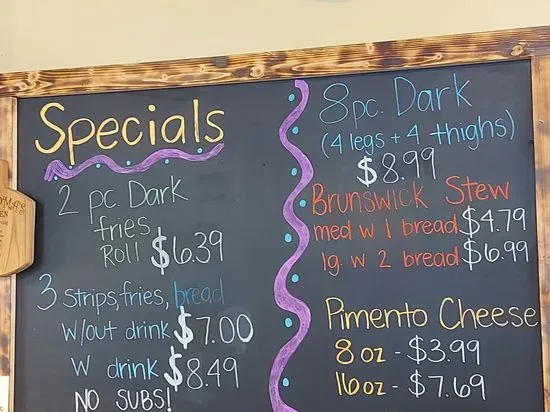 Specials
2 pc. Dark
fries
Roll $6.39
3 Strips, fries, bread
w/out drink $7.00
w drink $8.49
NO SUBS!
8 pc. Dark
(4 legs + 4 thighs)
$8.99
Brunswick Stew
med w 1 bread $4.79
lg. w 2 bread $6.99
Pimento Cheese
8 oz - $3.99
16 oz - $7.69